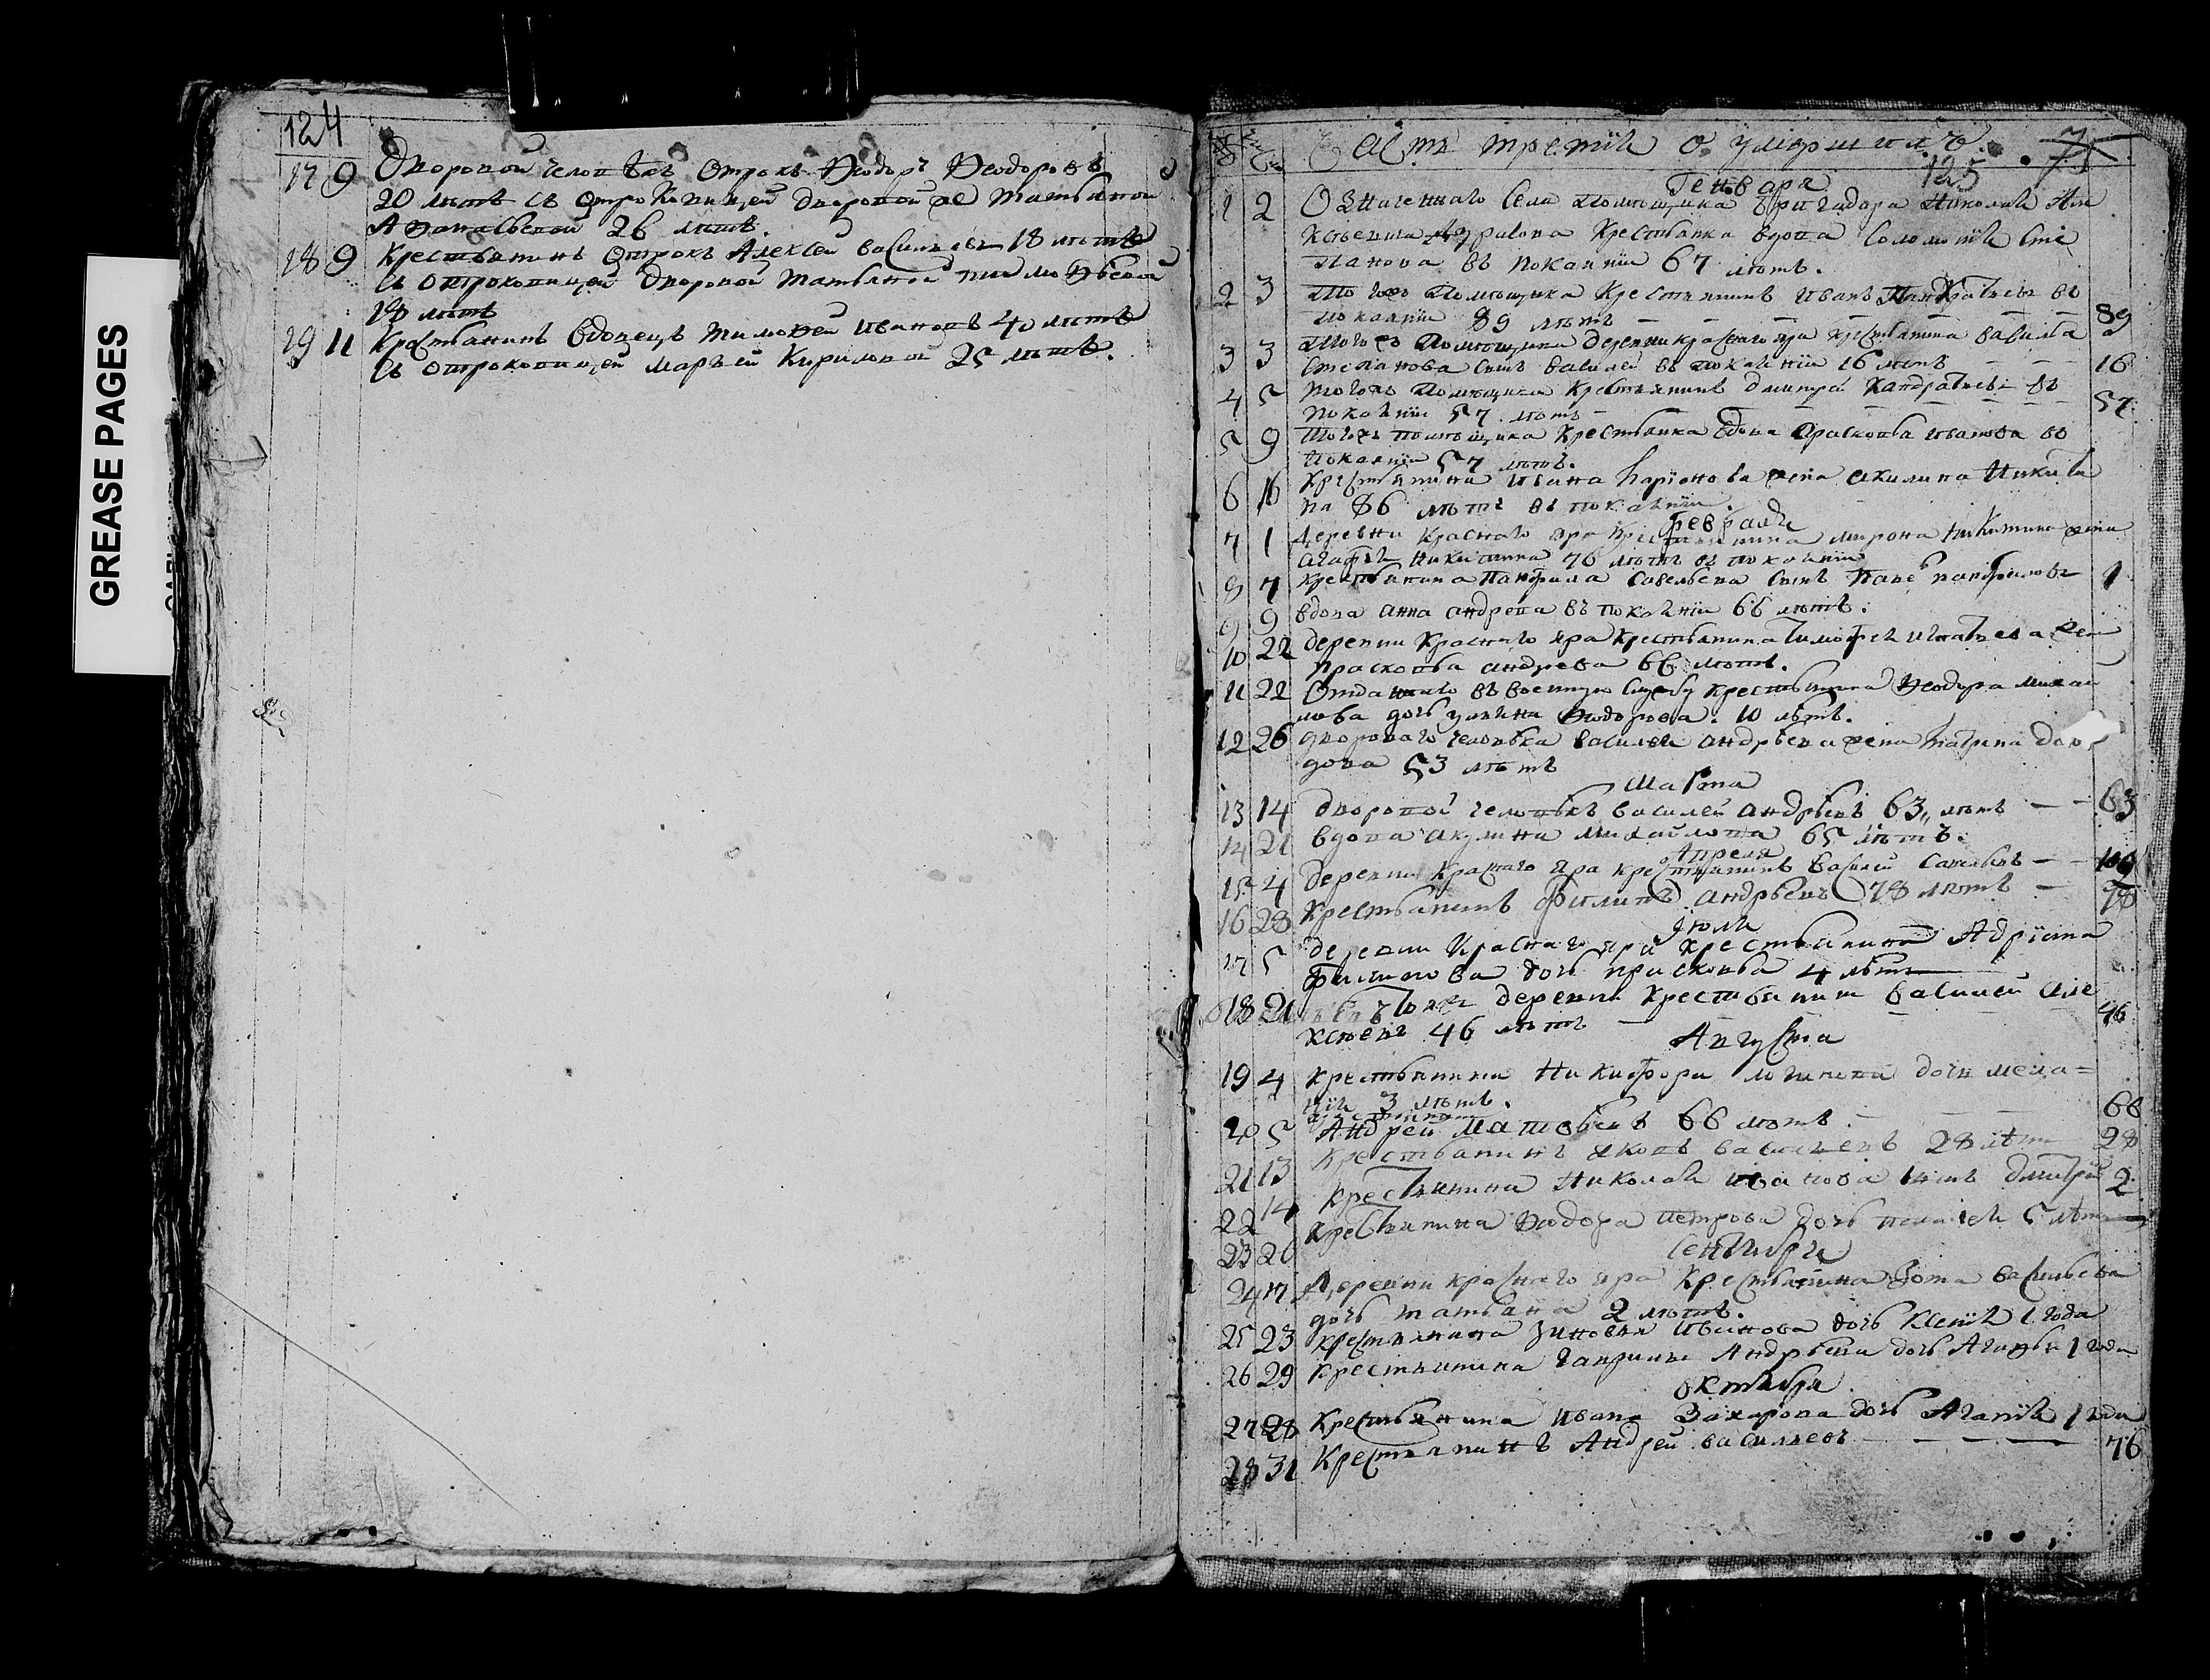 GREASE PAGES
124
17 9 Дворовой человѣкъ Отрокъ Ѳеодоръ Ѳеодоровъ
20 лѣтъ съ Отроковицей дворовой же Татьяной
26 лѣтъ.
18 9 Крестьянинъ Отрокъ Алексей Васильевъ 18 лѣтъ
съ отроковицей дворовой Татьяной Тимоѳѣевой
лѣтъ
19 11 Крестьянинъ вдовецъ Тимоѳей Ивановъ 40 лѣтъ
съ отроковицей Марьей Кириловой 25 лѣтъ.
Часть третія о умершихъ.
125
Генваря
1 2 Означеннаго Села помѣщика бригадира Николая Але
ксѣевича крестьянка вдова Соломнія Сте
панова въ покаяніи 67 лѣтъ.
2 3 Того жъ помѣщика крестьянинъ Иванъ въ
покаяніи 89 лѣтъ 89
3 3 Того жъ помѣщика деревни краснаго яра крестьянина Василья
Степанова сынъ Василей въ покаяніи 16 лѣтъ 16
4 5 Того жъ помѣщика крестьянинъ Дмитрей Кандратьевъ въ
покаяніи 57 лѣтъ 57
5 9 Того жъ помѣщика крестьянка вдова Прасковья Иванова въ
покаяніи 57 лѣтъ.
6 16 Крестьянина Ивана Ларіонова жена Акилина Никити
на 86 лѣтъ въ покаяніи.
Февраля
7 1 Деревни Краснаго яра крестьянина Мирона Никитина жена
Агафья Никитина 76 лѣтъ въ покаяніи
8 7 Крестьянина Панфила Савельева сынъ Панфиловъ 1
9 9 вдова Анна Андреева въ покаяніи 66 лѣтъ.
10 22 деревни Краснаго яра крестьянина Тимофея Игнатьева жена
Прасковья Андреева 66 лѣтъ.
11 22 Отданнаго въ военную службу крестьянина Ѳеодора Михаи
лова дочь Ѳеодорова. 10 лѣтъ.
12 26 дворового человѣка Василья Андрѣева жена Матрена
дова 53 лѣтъ
Марта
13 14 дворовой человѣкъ Василей Андрѣевъ 63 лѣтъ 63
14 21 вдова Акулина Михайлова 65 лѣтъ.
Апреля
15 4 деревни краснаго яра крестьянинъ Василей Савельевъ
16 28 Крестьянинъ Филипъ Андрѣевъ 78 лѣтъ 78
Іюля
17 5 деревни Краснаго яра крестьянина
Филипова дочь Прасковья 4 лѣтъ
18 21 деревни крестьянинъ Василей Але
ксѣевъ 46 лѣтъ 46
Августа
19 4 крестьянина Никифора Логинова дочь Мела=
нія 3 лѣтъ.
20 5 Крестьянинъ
Андрей Матвѣевъ 66 лѣтъ 66
21 13 Крестьянинъ Яковъ Васильевъ 28 лѣтъ 28
22 14 Крестьянина Николая Иванова сынъ Дмитрей 2
23 26 Крестьянина Ѳеодора Петрова дочь Пелагея 5 лѣтъ
Сентября
24 17 Деревни краснаго яра Крестьянина Васильева
дочь Татьяна 2 лѣтъ.
25 23 крестьянина Зиновья Иванова дочь Ксенія 1 года
26 29 Крестьянина Гаврилы Андрѣева дочь Агафья 1 года
октября
27 28 Крестьянина Ивана Захарова дочь Агапія 1 года
28 31 Крестьянинъ Андрей Васильевъ 76